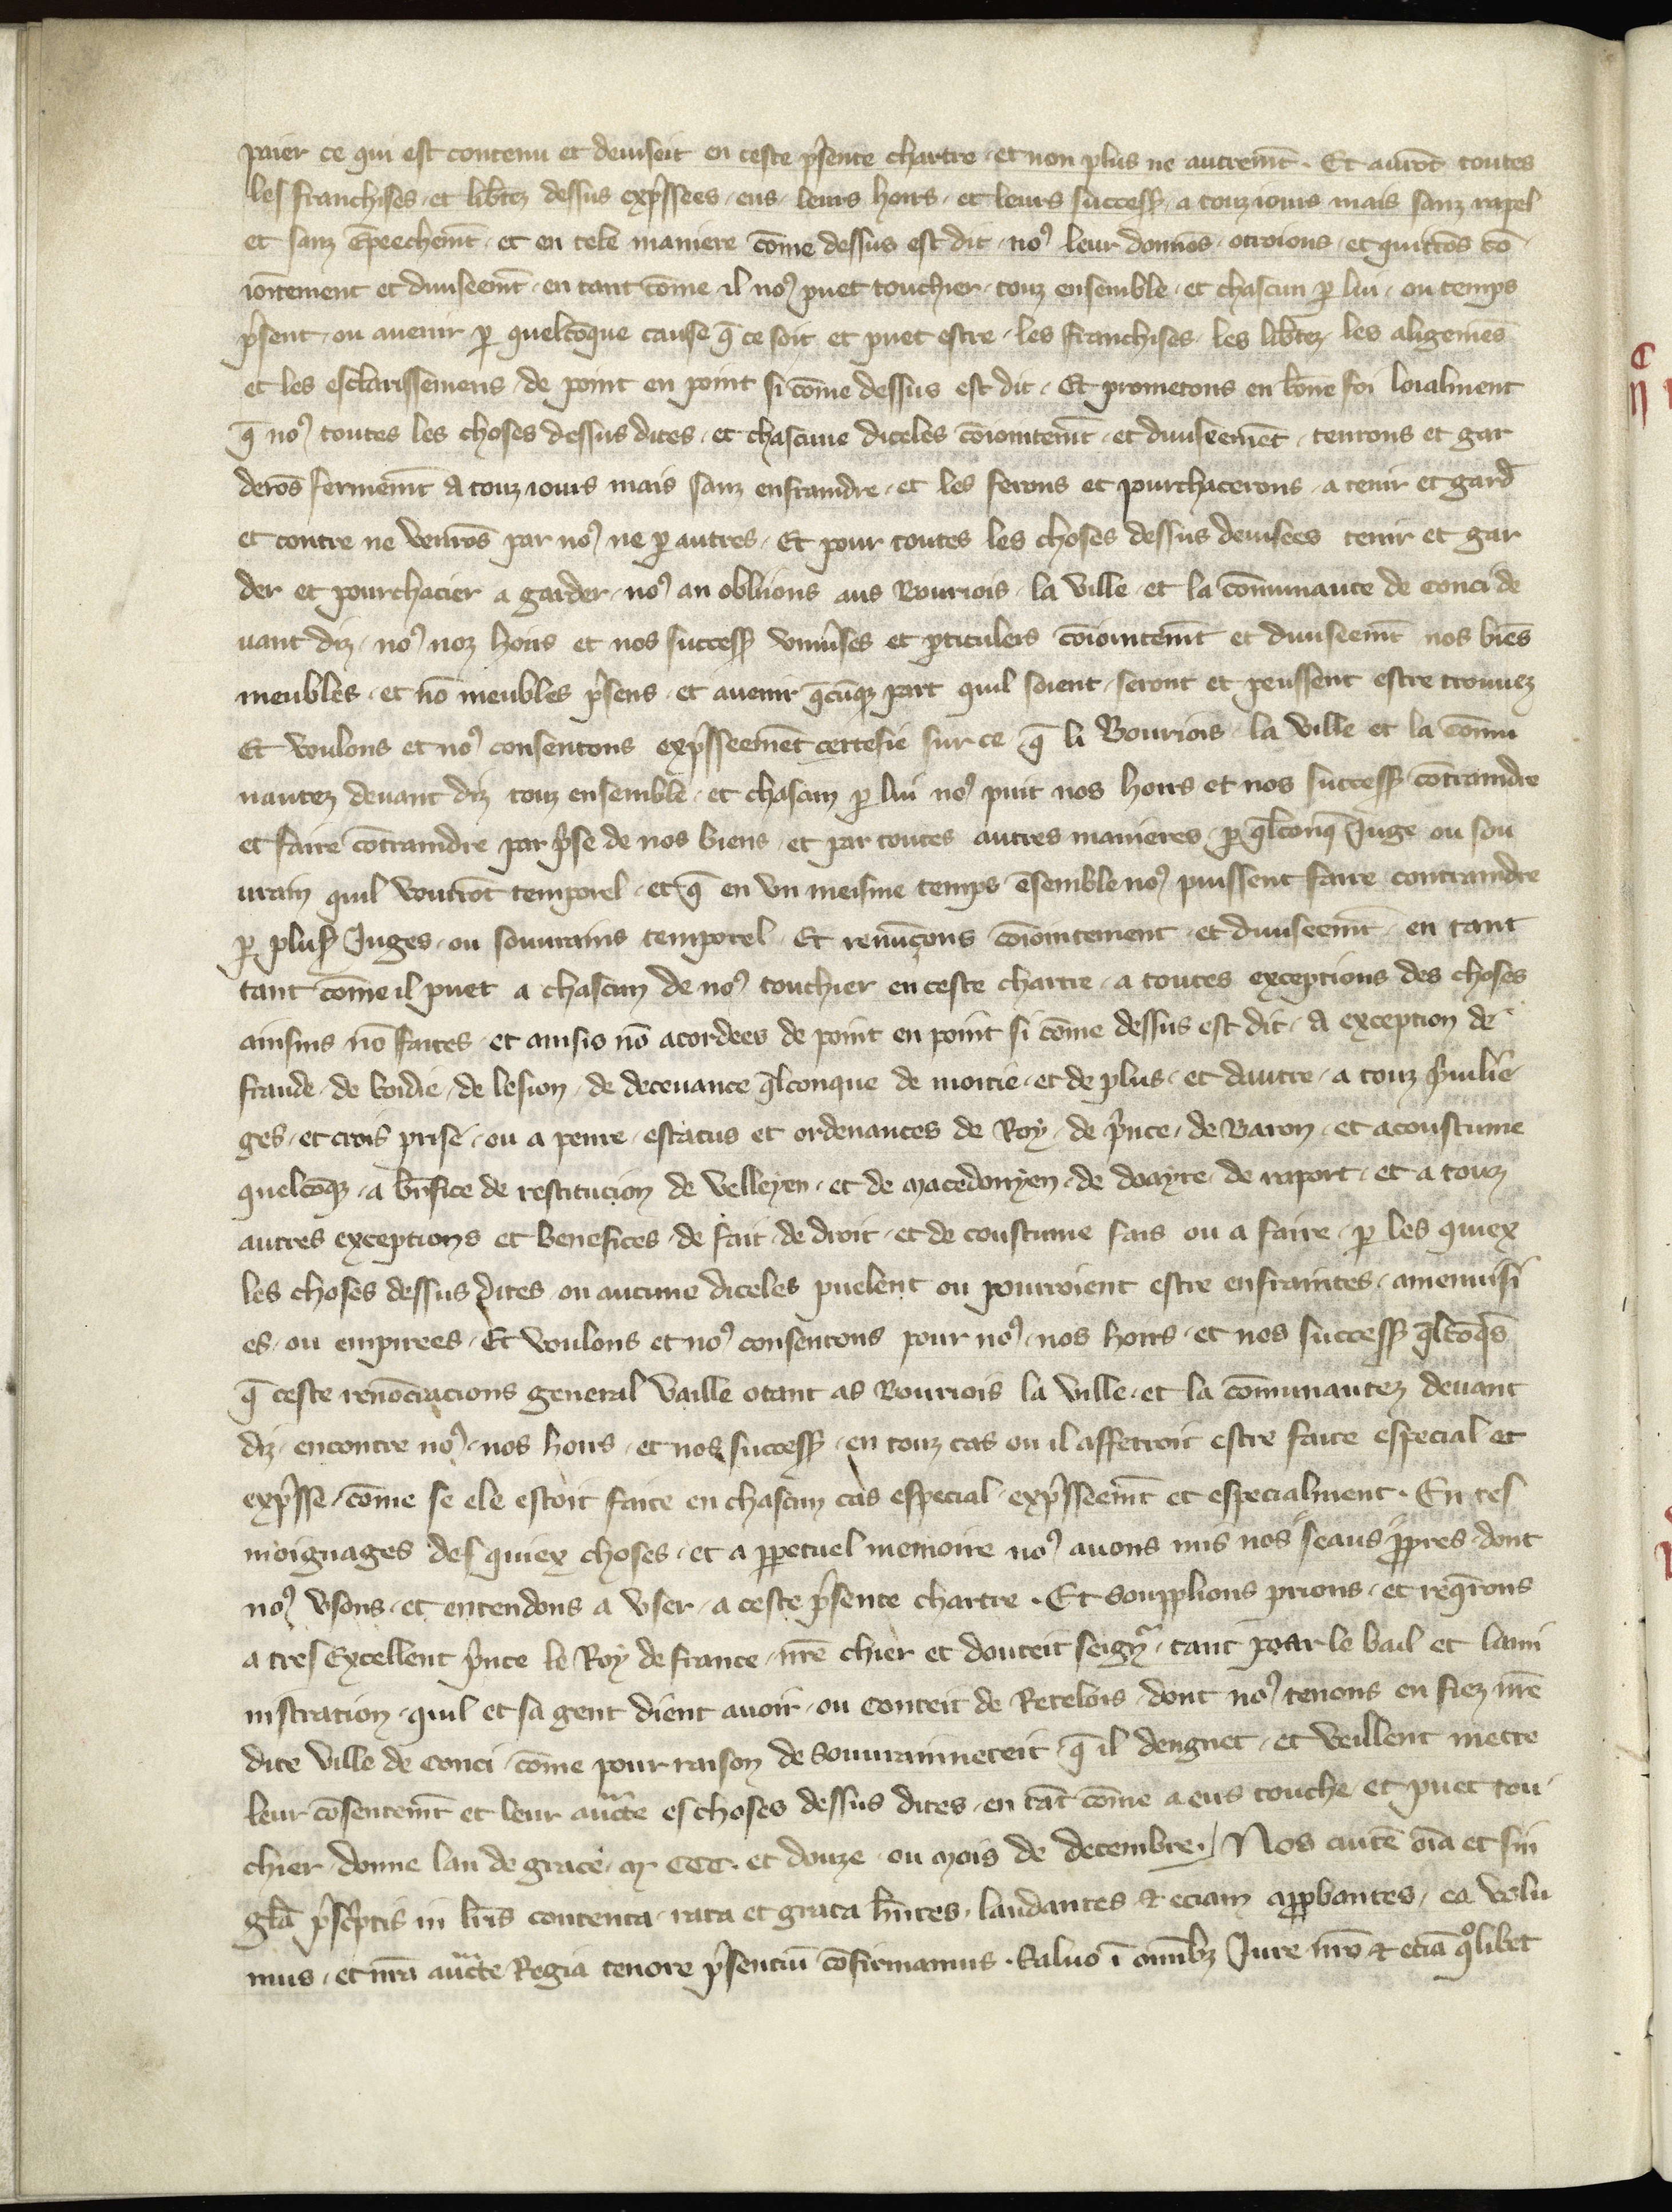 paier ce qui est contenu et deuiseit en ceste p̾sente chartre · et non plus ne autrem̄t · Et aurōt toutes
les franchises · et lib̄tez dessus exp̾ssees · eus · leurs hoirs · et leurs success̄ · a touz iours mais sanz rapel
et sanz ēpeechem̄t · et en tele maniere cōme dessus est dit · noꝰ leur donnōs · otroions · et quittōs cō
iointement et diuiseem̄t · en tant cōme il noꝰ puet touchier · touz ensemble · et chascun ꝑ lui · ou temps
p̾sent · ou auenir ꝑ quelcōque cause q̄ ce soit et puet estre · les franchises · les lib̄tez · les aligemēs
et les esclarissemens · de point en point si cōme dessus est dit · Et prometons en bōne foi loialment
q̄ noꝰ toutes les choses dessus dites · et chascune diceles cōiointem̄t · et diuiseemēt · tenrons et gar
derōs fermem̄t a touz iours mais sanz enfraindre · et les ferons et pourchacerons · a tenir et gard̄
et contre ne venrōs par noꝰ ne ꝑ autres · Et pour toutes les choses dessus deuisees tenir et gar
der et pourchacier a garder · noꝰ an obllions aus Bouriois · la ville · et la cōmunaute de Conci de
uant diz · noꝰ noz hoirs et nos success̄ vniu̾ses et ꝑticulers cōiointem̄t et diuiseem̄t nos biēs
meubles · et nō meubles p̾sens · et auenir q̄cūqꝫ part quil soient · seront et peussent estre trouuez
Et voulons et noꝰ consentons exp̾sseemēt certefie sur ce q̄ li Bouriois · la ville et la cōmu
nautez deuant diz touz ensemble · et chascun ꝑ lui noꝰ puit nos hoirs et nos success̄ cōtraindre
et faire cōtraindre par p̾se de nos biens · et par toutes autres manieres · ꝑ q̄lconq̄ Juge ou sou
urain quil vourrōt temporel · et q̄ en vn meisme temps ēsemble noꝰ puissent faire contraindre
ꝑ plus̄ Juges · ou souurains temporel · Et renūçons cōiointement · et diuiseem̄t · en tant
tant cōme il puet a chascun de noꝰ touchier en ceste chartre · a toutes exceptions des choses
ainsins nō faites · et ainsis nō acordees de point en point si cōme dessus est dit · A exception de
fraude · de boidie · de lesion · de deceuance q̄lconque de moitie · et de plus · et dautre · a touz p̾uile
ges · et crois prise · ou a penre · estatus et ordenances de Roy · de p̾nce · de Baron · et acoustume
quelcōqꝫ · a bn̄fice de restitucion de velleyen · et de macedonyen · de doayre · de raport · et a touz
autres exceptions et benefices · de fait · de droit · et de coustume fais ou a faire · ꝑ les quiex
les choses dessus dites ou aucune diceles puelent ou pourroient estre enfraintes · amenuisi
es · ou empirees · Et voulons et noꝰ consentons pour noꝰ · nos hoirs · et nos success̄ q̄lcōq̄s
q̄ ceste renōciacions general vaille otant as Bouriois la ville · et la cōmunautez deuant
diz · encontre noꝰ · nos hoirs · et nos success̄ · en touz cas ou il afferroit estre faite especial et
exp̾sse · cōme se ele estoit faite en chascun cas especial · exp̾sseem̄t et especialment · En tes
moignages des quiex choses · et a ꝑpetuel memoire noꝰ auons mis nos seaus ꝓpres dont
noꝰ vsons · et entendons a vser · a ceste p̾sente chartre · Et soupplions prions · et req̄rons
a tres Excellent p̾nce le Roy de france · nr̄e chier et douteit seign̄ · tant pour le bail et lami
nistration · quil et sa gent dient auoir · ou Conteit de Retelois · dont noꝰ tenons en fiez nr̄e
dite ville de Conci · cōme pour raison de souurainneteit · q̄ il dengnet · et veillent metre
leur cōsentem̄t et leur auct̄e es choses dessus dites · en tāt cōme a eus touche · et puet tou
chier · donne lan de grace · M CCC · et douze · ou mois de decembre · Nos autē oīa et sin
gl̄a p̾sc̾ptis in lr̄is contenta · rata et grata hn̄tes · laudantes & eciam approbantes · ea volu
mus · et nr̄a auct̄e Regia tenore p̾sentiū cōfirmamus · Saluo ī omibꝫ Jure nr̄o & eciā qͦlibet